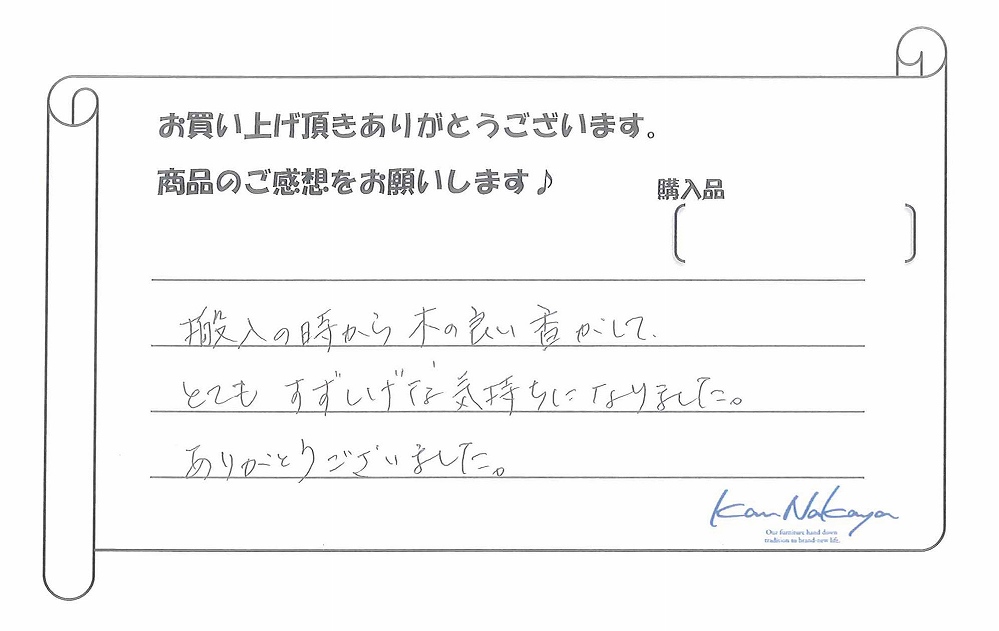 お買い上げ頂きありがとうございます。
商品のご感想をお願いします♪
購入品
搬入の時から 木の良い香がして、
とても すずしげな気持ちになりました。
ありがとうございました。
Kan Nakaya
Our furniture hand down
tradition to brand-new life.